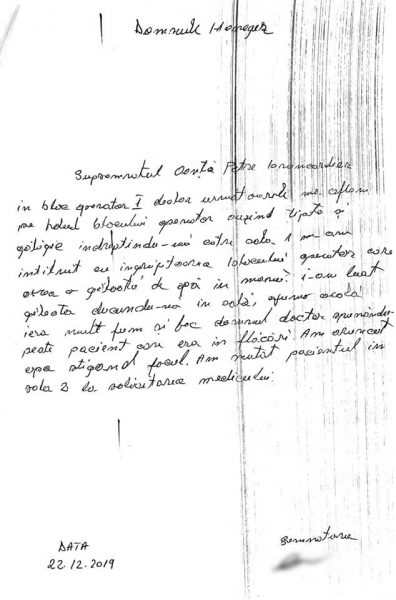 Domnule Manager
Supsemnatul Oanță Petre brancardier
in bloc operator I declar urmatoarele me aflam
pe holul blocului operator auzind țipete și
gălăgie indreptindu-mă către sala 1 m-am
intilnit cu ingrijitoarea blocului operator care
avea o găleată de apă in mană i-am luat
găleata ducundu-mă in sală, ajuns acolo
iera mult fum si foc domnul doctor
peste pacient care era in flăcări. Am aruncat
apa stigand focul. Am mutat pacientul in
sala 2 la solicitarea medicului
DATA
22.12.2019
semnatura